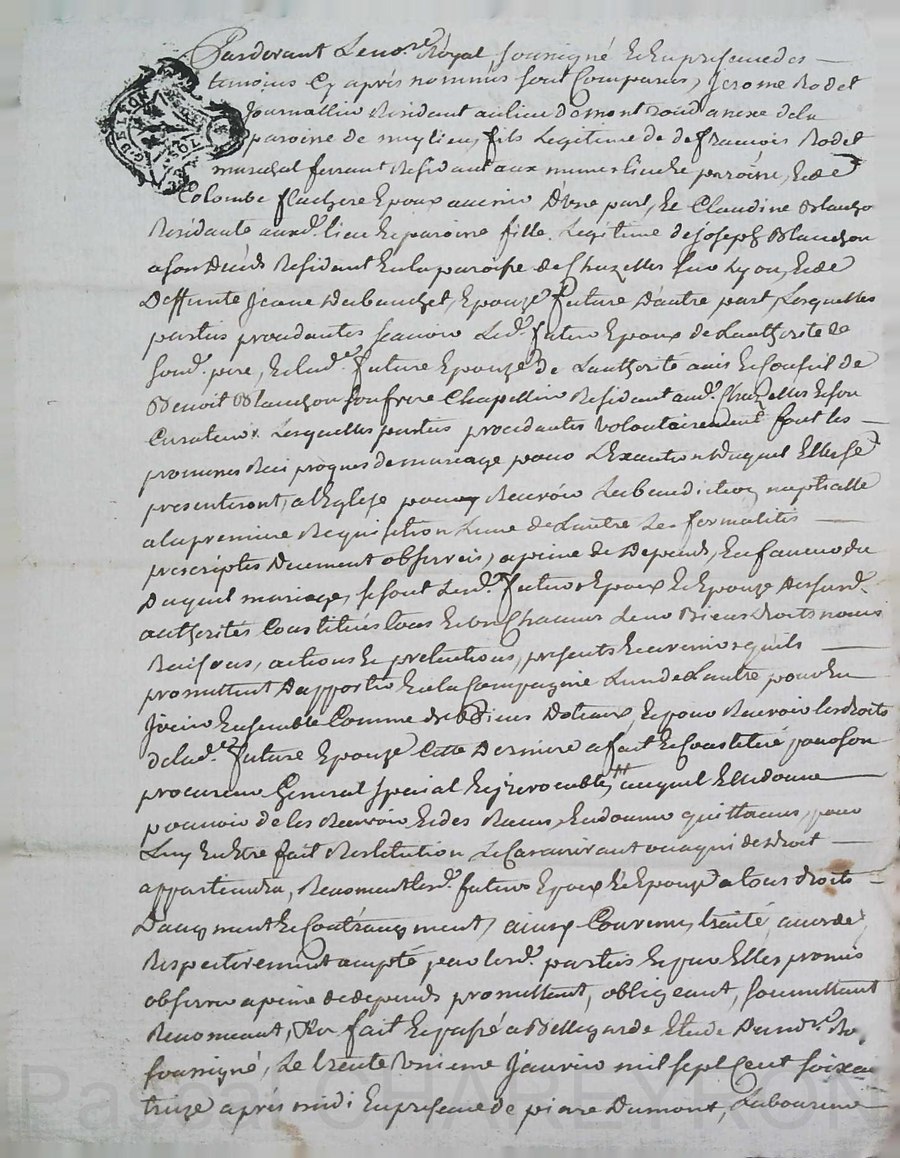 Pardevant Le no.re Royal soussigné Et En presence des
temoins Cy après nommés sont Comparus, Jerome Rodet
Journallier Residant au lieu de montrond annexe de la
G. DE LYON
paroisse de meylieu, fils Legitime de de francois Rodet
marechal ferrant Residant aux memes lieu & paroisse, & de
Colombe Epoux avenir D'Une part, Et Claudine Blanchon
Residante aud. lieu & paroisse fille Legitime de Joseph Blanchon
a son Décès Residant En la paroisse de Chazelles sur Lyon, & de
Deffunte Jeane Epouze future D'autre part, Lesquelles
parties procedantes scavoir Led. futur Epoux de L'authorité de
sond. pere, Et lad. future Epouze de L'authorité avis Et Conseil de
Benoit Blanchon son frere Chapellier Residant aud. Chazelles Et son
Curateur. Lesquelles parties procedantes volontairement font les
promesses Reciproques de mariage pour L'Execution Duquel Elles se
presenteront, a l'Eglise pour y Recevoir La benediction nuptialle
a la premiere Requisition L'une de L'autre Les formalités
prescriptes Deuement observées, a peine de Depends, En faveur du
Duquel mariage, se sont Lesd. futurs Epoux & Epouze Desusd.
authorités Constitués tous & un Chacuns Leurs Biens Droits noms
Raisons, actions & pretentions, presents & avenirs qu'ils
promettent D'apporter En la Compagnie L'un de L'autre pour En
Jouir Ensemble Comme de Biens Dotaux, Et pour Recevoir les droits
de lad. future Epouze Cette Derniere a fait & Constitué pour son
procureur General special Et irrevocable auquel Elle donne
pouvoir de les Recevoir Et des Recus, En donner quittances, pour
Luy En Etre fait Restitution Le Cas arrivant ou a qui de droit
appartiendra, Renoncant lesd. futurs Epoux & Epouze a tous droits
D'augment & Contr'augment, ainsy Convenu, traité, accordé,
Respectivement accepté, par lesd. parties & que Elles promis
observer a peine de depends promettant, obligeant, soumettant
Renoncant, fait & passé a Bellegarde Etude Dud. no.re
soussigné, Le trente Unieme Janvier mil sept Cent soixante
treize après midi En presence de pierre Dumont, Laboureur
Pascal CHAREYRON